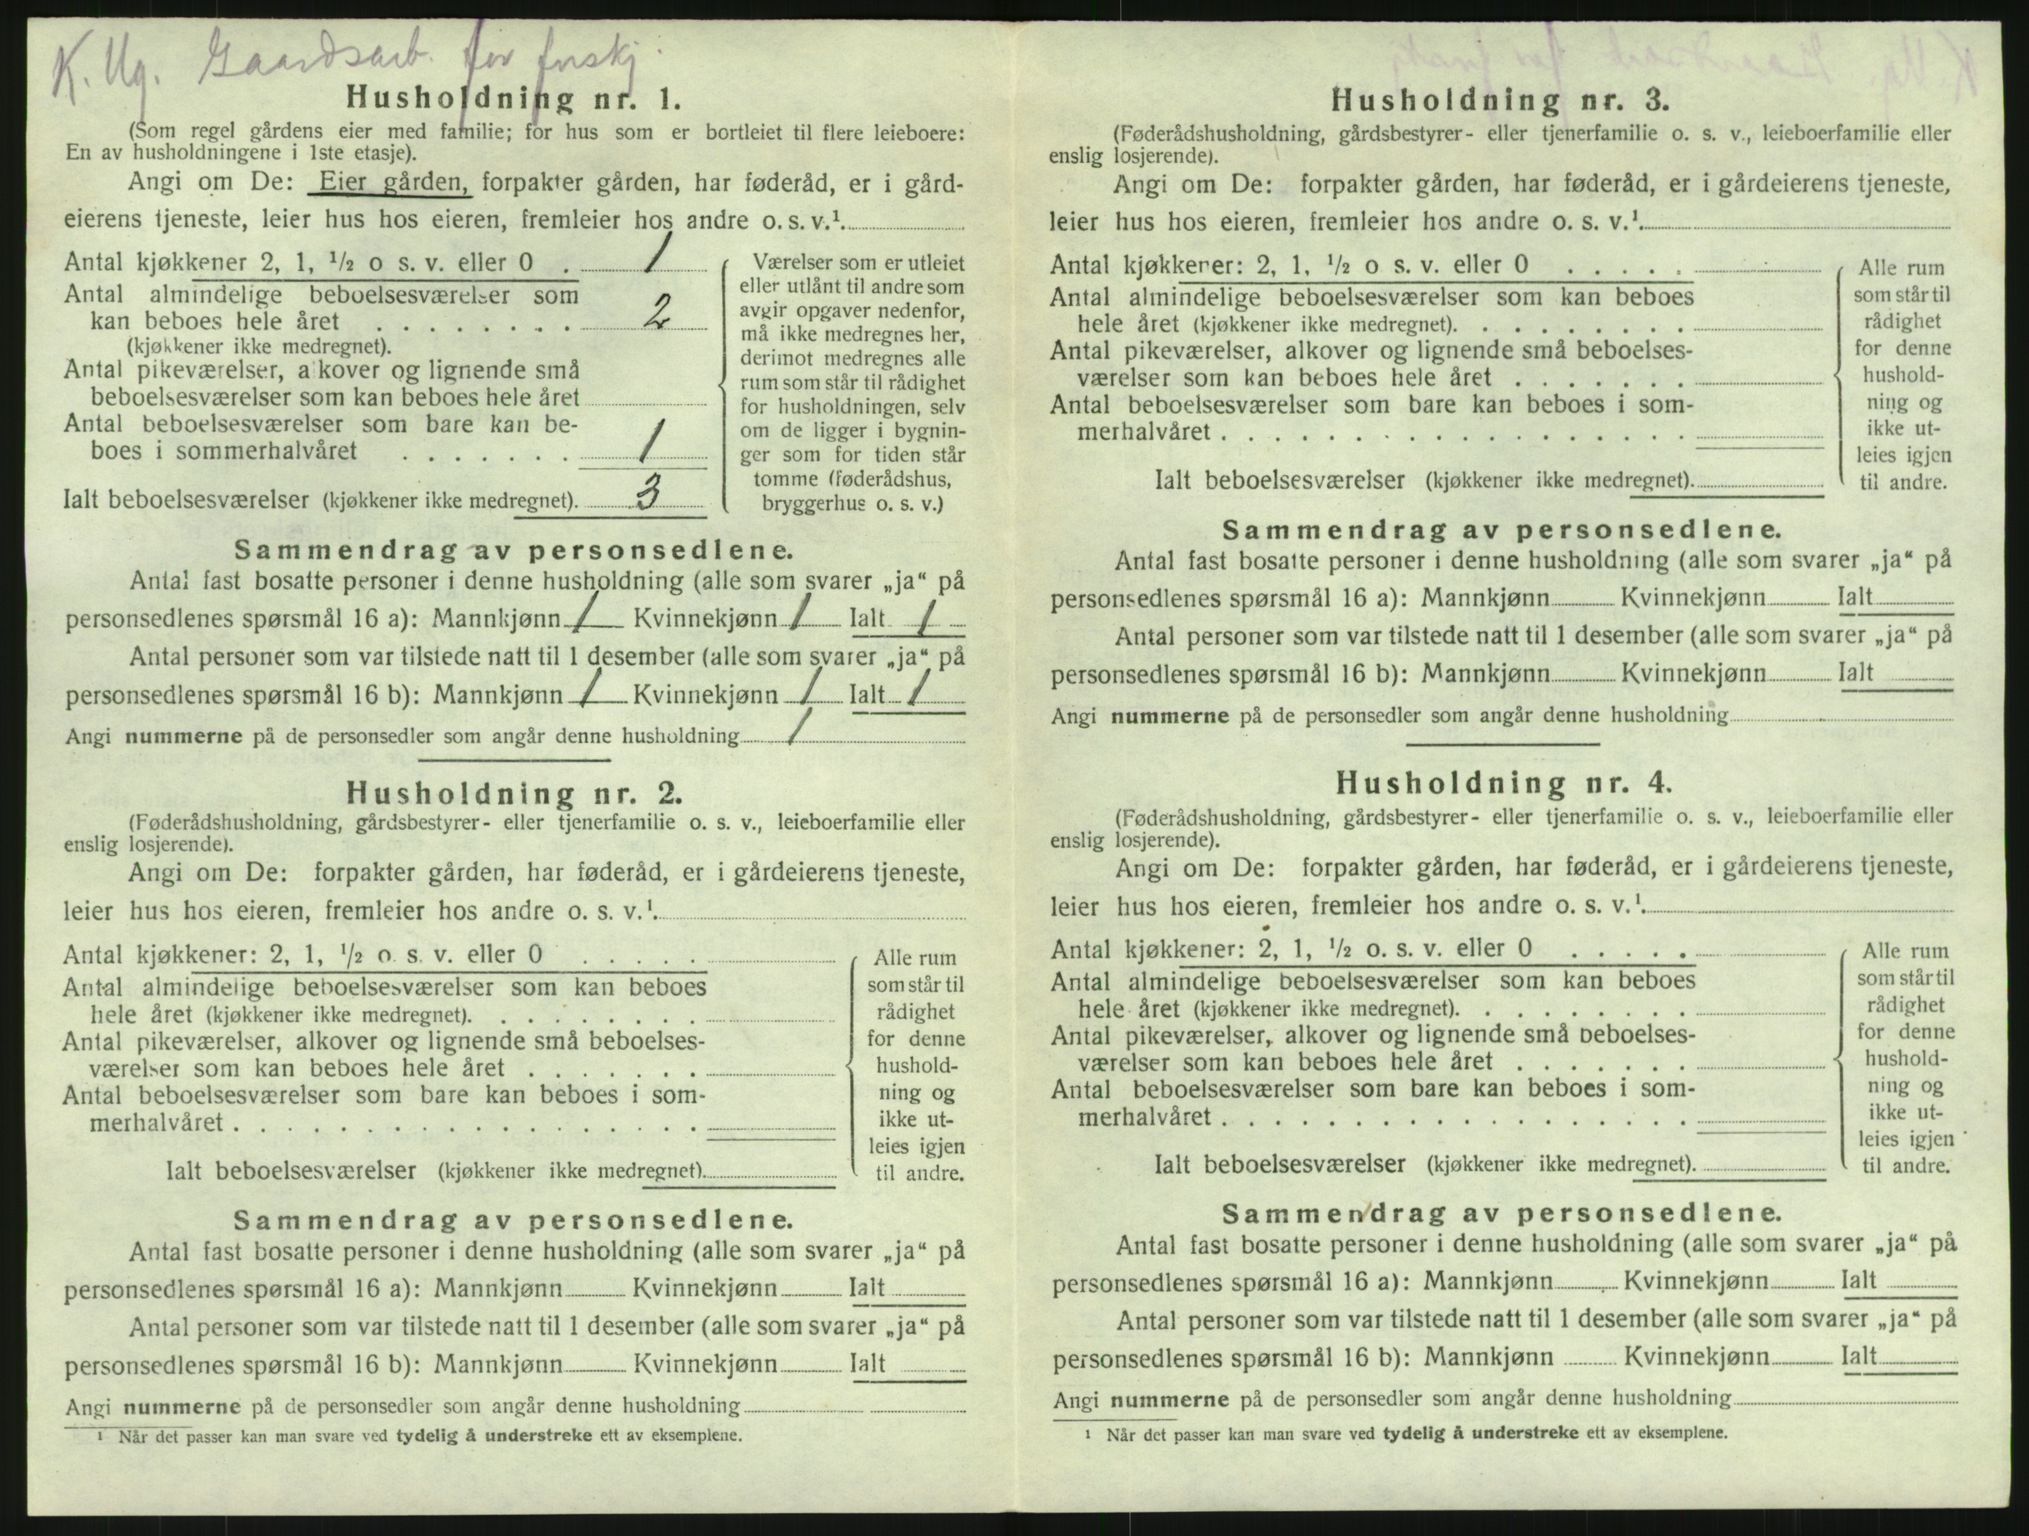 K. Ug. Gaardsarb. for forskj.
Husholdning nr. 1.
(Som regel gårdens eier med familie; for hus som er bortleiet til flere leieboere:
En av husholdningene i 1ste etasje).
Angi om De: Eier gården, forpakter gården, har føderåd, er i gård-
eierens tjeneste, leier hus hos eieren, fremleier hos andre o. s. v.¹
Antal kjøkkener 2, 1, ½ o s. v. eller 0 . 1
Antal almindelige beboelsesværelser som
kan beboes hele året . . . . . . . . 2
(kjøkkener ikke medregnet).
Antal pikeværelser, alkover og lignende små
beboelsesværelser som kan beboes hele året
Antal beboelsesværelser som bare kan be-
boes i sommerhalvåret . . . . . . . 1
Ialt beboelsesværelser (kjøkkener ikke medregnet). 3
Værelser som er utleiet
eller utlånt til andre som
avgir opgaver nedenfor,
må ikke medregnes her,
derimot medregnes alle
rum som står til rådighet
for husholdningen, selv
om de ligger i bygnin-
ger som for tiden står
tomme (føderådshus,
bryggerhus o. s. v.)
Sammendrag av personsedlene.
Antal fast bosatte personer i denne husholdning (alle som svarer „ja“ på
personsedlenes spørsmål 16 a): Mannkjønn 1 Kvinnekjønn 1 Ialt 1
Antal personer som var tilstede natt til 1 desember (alle som svarer „ja“ på
personsedlenes spørsmål 16 b): Mannkjønn 1 Kvinnekjønn 1 Ialt 1
Angi nummerne på de personsedler som angår denne husholdning 1
Husholdning nr. 2.
(Føderådshusholdning, gårdsbestyrer- eller tjenerfamilie o. s. v., leieboerfamilie eller
enslig losjerende).
Angi om De: forpakter gården, har føderåd, er i gårdeierens tjeneste,
leier hus hos eieren, fremleier hos andre o. s. v.¹
Antal kjøkkener: 2, 1, ½ o. s. v. eller 0 . . . . .
Antal almindelige beboelsesværelser som kan beboes
hele året (kjøkkener ikke medregnet). . . . . . . . .
Antal pikeværelser, alkover og lignende små beboelses-
værelser som kan beboes hele året . . . . . . .
Antal beboelsesværelser som bare kan beboes i som-
merhalvåret . . . . . . . . . . . . . . . . . .
Ialt beboelsesværelser (kjøkkener ikke medregnet).
Alle rum
som står til
rådighet
for denne
hushold-
ning og
ikke ut-
leies igjen
til andre.
Sammendrag av personsedlene.
Antal fast bosatte personer i denne husholdning (alle som svarer „ja“ på
personsedlenes spørsmål 16 a): Mannkjønn Kvinnekjønn Ialt
Antal personer som var tilstede natt til 1 desember (alle som svarer „ja“ på
personsedlenes spørsmål 16 b): Mannkjønn Kvinnekjønn Ialt
Angi nummerne på de personsedler som angår denne husholdning
¹ Når det passer kan man svare ved tydelig å understreke ett av eksemplene.
Husholdning nr. 3.
(Føderådshusholdning, gårdsbestyrer- eller tjenerfamilie o. s. v., leieboerfamilie eller
enslig losjerende).
Angi om De: forpakter gården, har føderåd, er i gårdeierens tjeneste,
leier hus hos eieren, fremleier hos andre o. s. v.¹
Antal kjøkkener: 2, 1, ½ o s. v. eller 0 . . . . .
Antal almindelige beboelsesværelser som kan beboes
hele året (kjøkkener ikke medregnet). . . . . . . . .
Antal pikeværelser, alkover og lignende små beboelses-
værelser som kan beboes hele året . . . . . . .
Antal beboelsesværelser som bare kan beboes i som-
merhalvåret . . . . . . . . . . . . . . . . . .
Ialt beboelsesværelser (kjøkkener ikke medregnet).
Alle rum
som står til
rådighet
for denne
hushold-
ning og
ikke ut-
leies igjen
til andre.
Sammendrag av personsedlene.
Antal fast bosatte personer i denne husholdning (alle som svarer „ja“ på
personsedlenes spørsmål 16 a): Mannkjønn Kvinnekjønn Ialt
Antal personer som var tilstede natt til 1 desember (alle som svarer „ja“ på
personsedlenes spørsmål 16 b): Mannkjønn Kvinnekjønn Ialt
Angi nummerne på de personsedler som angår denne husholdning
Husholdning nr. 4.
(Føderådshusholdning, gårdsbestyrer- eller tjenerfamilie o. s. v., leieboerfamilie eller
enslig losjerende).
Angi om De: forpakter gården, har føderåd, er i gårdeierens tjeneste,
leier hus hos eieren, fremleier hos andre o. s. v.¹
Antal kjøkkener: 2, 1, ½ o. s. v. eller 0 . . . . .
Antal almindelige beboelsesværelser som kan beboes
hele året (kjøkkener ikke medregnet). . . . . . . . .
Antal pikeværelser, alkover og lignende små beboelses-
værelser som kan beboes hele året . . . . . . .
Antal beboelsesværelser som bare kan beboes i som-
merhalvåret . . . . . . . . . . . . . . . . . .
Ialt beboelsesværelser (kjøkkener ikke medregnet).
Alle rum
som står til
rådighet
for denne
hushold-
ning og
ikke ut-
leies igjen
til andre.
Sammendrag av personsedlene.
Antal fast bosatte personer i denne husholdning (alle som svarer „ja“ på
personsedlenes spørsmål 16 a): Mannkjønn Kvinnekjønn Ialt
Antal personer som var tilstede natt til 1 desember (alle som svarer „ja“ på
personsedlenes spørsmål 16 b): Mannkjønn Kvinnekjønn Ialt
Angi nummerne på de personsedler som angår denne husholdning
¹ Når det passer kan man svare ved tydelig å understreke ett av eksemplene.